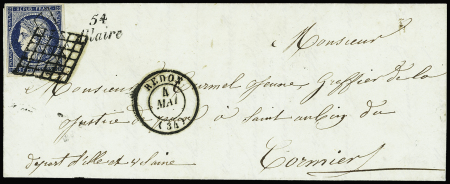 REPUB. FRANC.
54
Blaire
Monsieur
REDON
4
MAI
(34)
Monsieur Jeune Greffier de la
Justice à Saint aubin du
Cormier
depart d'ille et vilaine